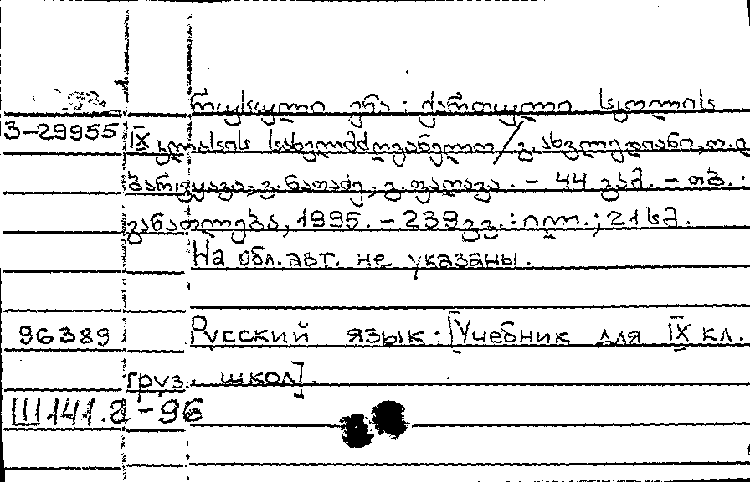 რუსული ენა : ქართული სკოლის
З-29955 IX კლასის სახელმძღვანელო / გ. ახვლედიანი, თ.
ვ. ნათაძე, ვ. ფაღავა. – 44 გამ. – თბ. :
განათლება, 1995. – 239 გვ. : ილ. ; 21 სმ.
На обл. авт. не указаны.
96389 Русский язык : [Учебник для IX кл.
груз. школ].
Ш141.2-96